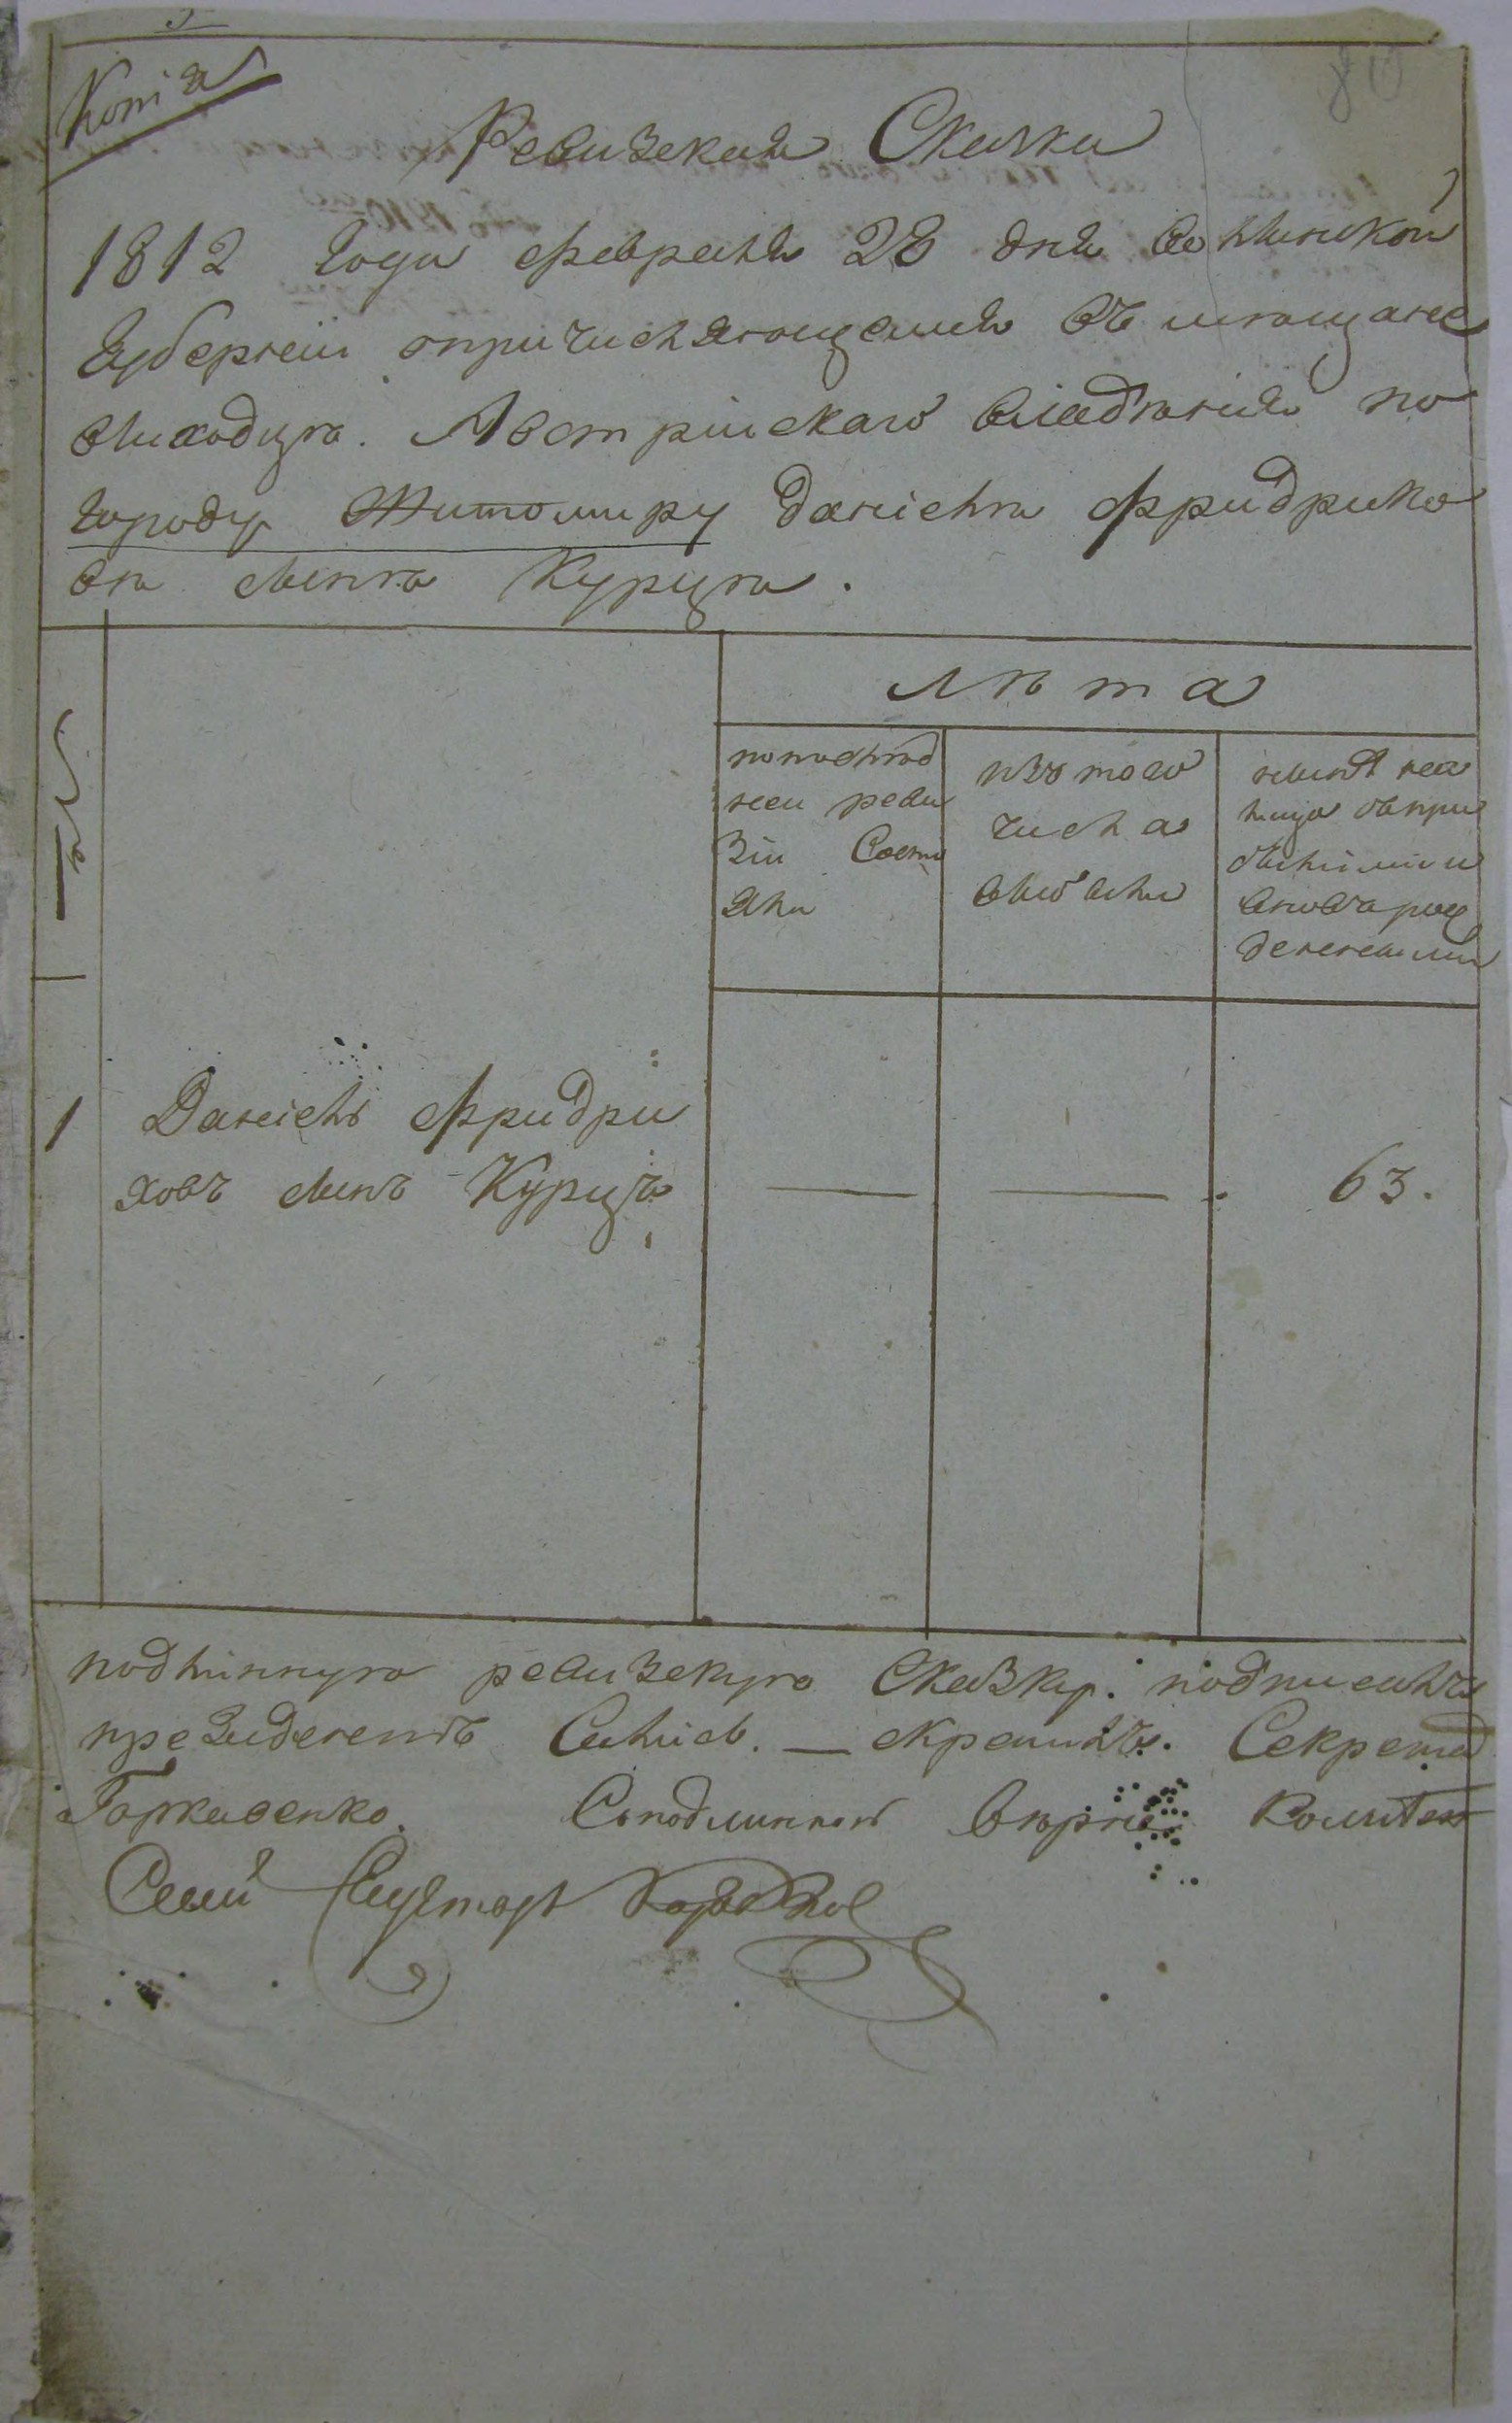 Копія
Ревизская Сказка
1812 года февраля 28 дня Волынской
Губерніи опричисляющемся въ мѣщане
выходцѣ Австрійскаго владѣнія по
городу Житомиру Даніелѣ Фридрихо
вѣ сынѣ Курцѣ.
Лѣта
попослѣд
ней реви
зіи Состо
яли
изъ того
числа
выбыли
нынѣ на
лицо съ при
былыми и
вновь рож
денными
1 Даніель Фридри
ховъ сынъ Курцъ — — 63.
подлинную ревизскую Сказку подписалъ
президентъ скрепилъ Секретар
Горкавенко. Съ подлинной вѣрно